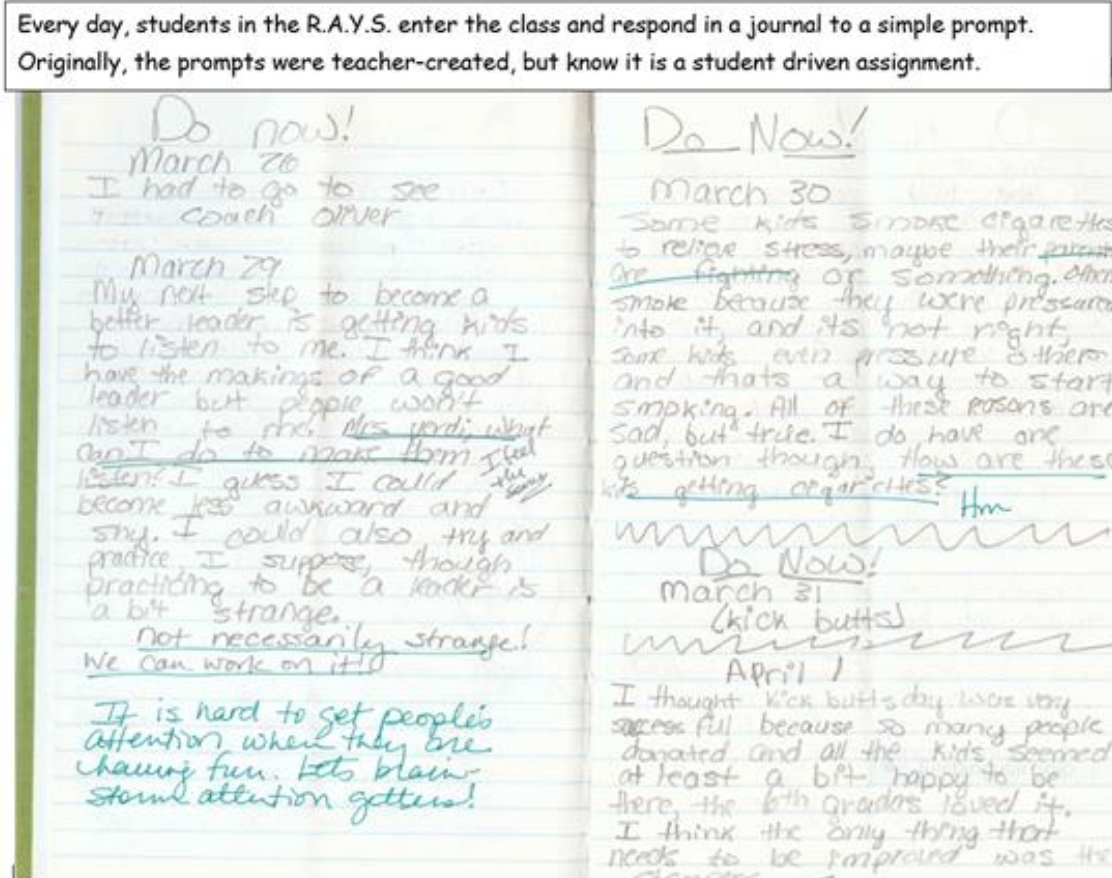 Every day, students in the R.A.Y.S. enter the class and respond in a journal to a simple prompt.
Originally, the prompts were teacher-created, but know it is a student driven assignment.
Do now!
March 26
I had to go to see
coach oliver
March 29
My next step to become a
better leader is getting kids
to listen to me. I think I
have the makings of a good
leader but people won't
listen to me. Mrs what
can I do to make them
listen? I guess I could
I feel
the same
become less awkward and
shy. I could also try and
practice, I suppose, though
practicing to be a leader is
a bit strange.
not necessarily strange!
We can work on it!
It is hard to get people's
attention when they are
having fun. Lets brain-
storm attention getters!
Do Now!
March 30
Some kids smoke cigarettes
to relieve stress, maybe their parents
are fighting or something.
smoke because they were pressure
into it, and its not right,
some kids even pressure others
and thats a way to start
smoking. All of these reasons are
sad, but true. I do have one
question though, How are these
kids getting cigarettes?
Hm
Do Now!
March 31
(kick butts)
April 1
I thought kick butts day was very
successfull because so many people
donated and all the kids seemed
at least a bit happy to be
there, the 6th gradas loved it.
I think the only thing that
needs to be improved was the